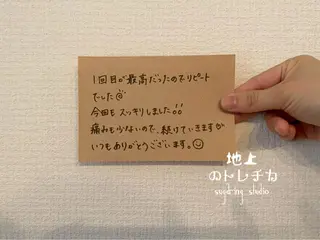 1回目が最高だったのでリピート
でした
今回もスッキリしました!!
痛みも少ないので、続けていきますが
いつもありがとうございます。
地上
のトレチカ
sugaring studio